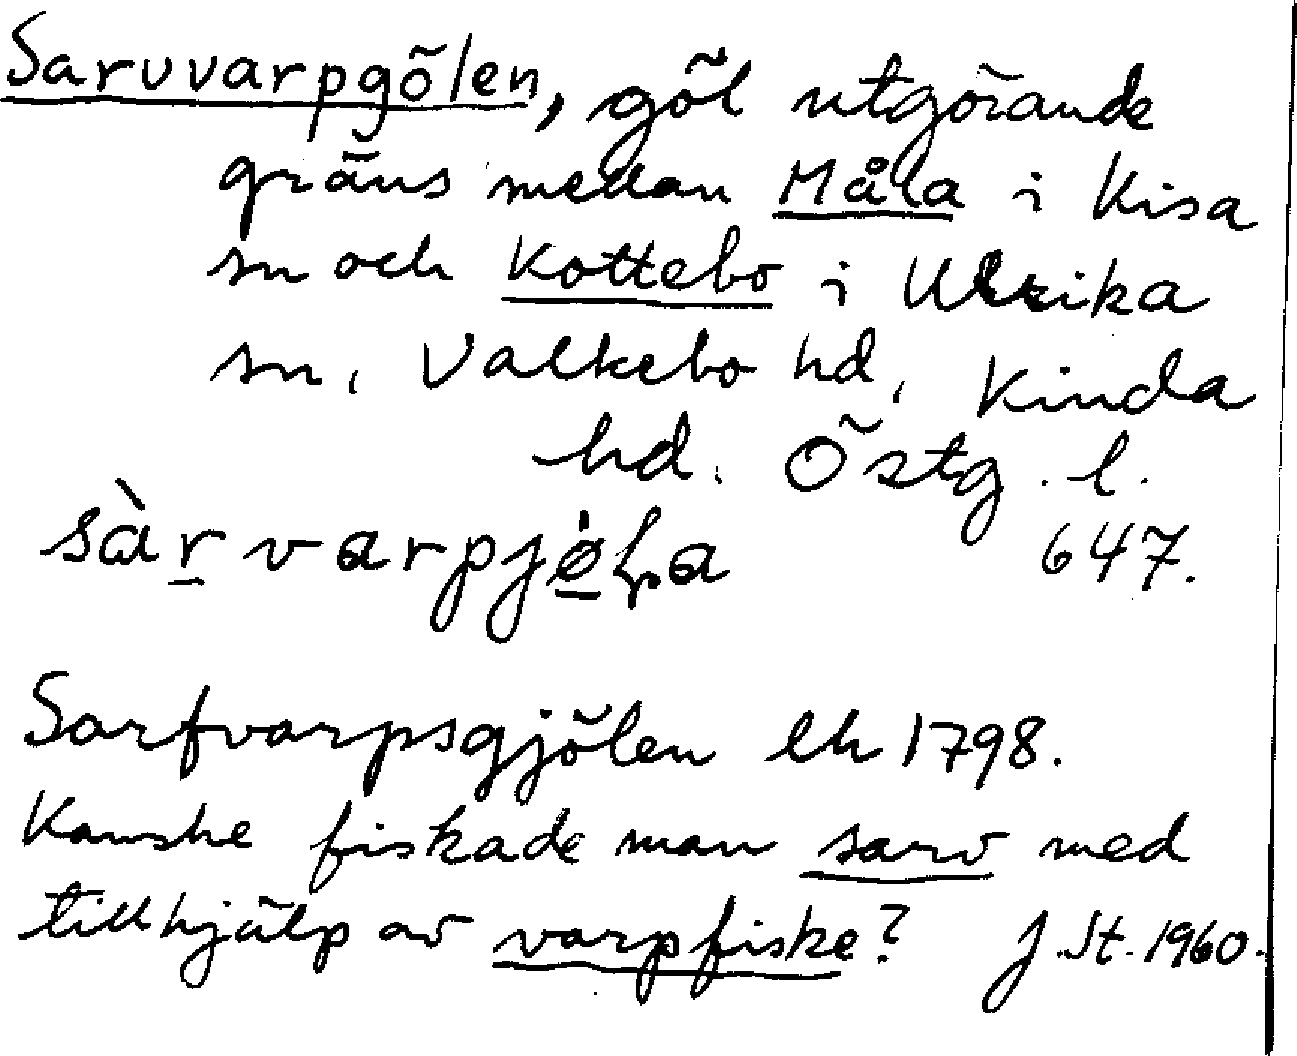 Sarvvarpgölen, göl utgörande
gräns medan Måla i Kisa
sn och Kottebo i Ulrika
sn, Valkebo hd, Kinda
hd. Östg. l.
sàr varpjø̀ḷa 647.
Sarfvarpsgjölen lh 1798.
Kanske fiskade man sarv med
tillhjälp av varpfiske? J. St. 1960.